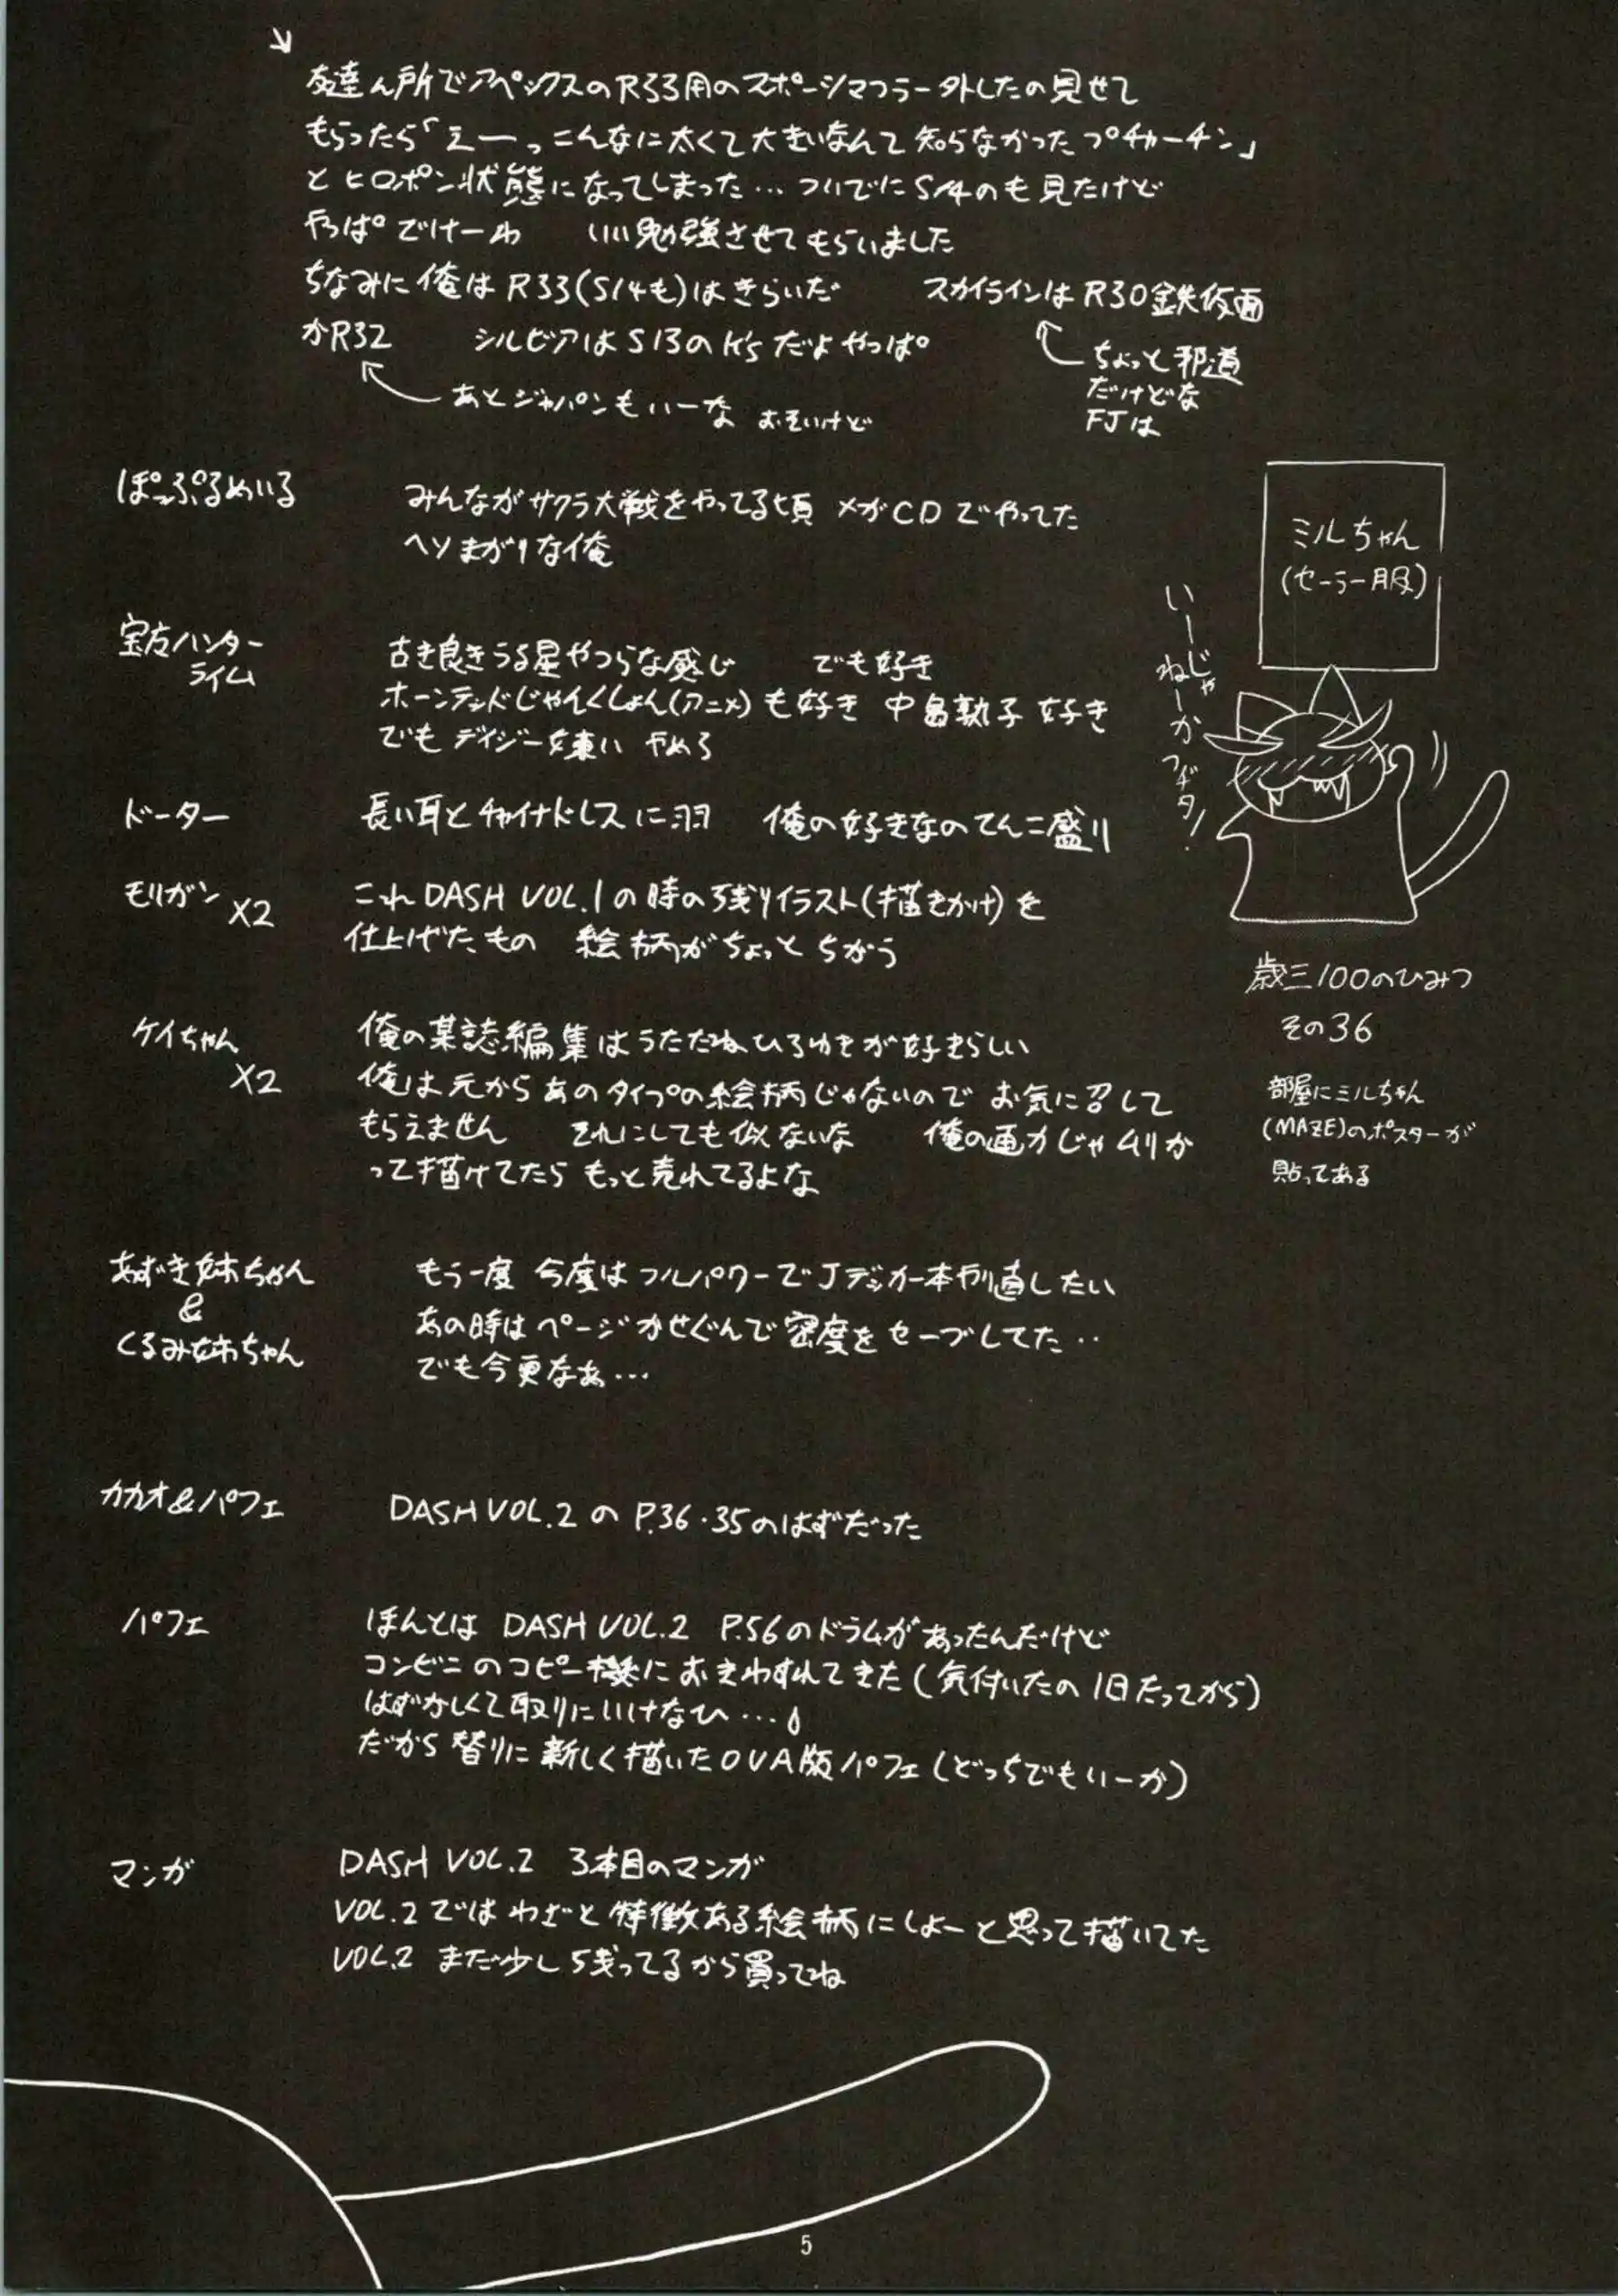 友達ん所でアペックスのR33用のスポーツマフラー外したの見せて
もらったら「えーっこんなに太くて大きいなんて知らなかったプチャーチン」
とヒロポン状態になってしまった…ついでにS14のも見たけど
やっぱでけーわ いい勉強させてもらいました
ちなみに俺はR33(S14も)はきらいだ スカイラインはR30鉄仮面
かR32 シルビアはS13のK'sだよやっぱ
ちょっと邪道
だけどな
FJは
あとジャパンもいーな おそいけど
ぽっぷるめいる
みんながサクラ大戦をやってる頃 メガCDでやってた
ヘソまがりな俺
宝方ハンター
ライム
古き良きうる星やつらな感じ でも好き
ホーンテッドじゃんくしょん(アニメ)も好き 中島敦子好き
でもデイジー嫌い やめろ
ドーター
長い耳とチャイナドレスに羽 俺の好きなのてんこ盛り
モリガン X2
これDASH VOL.1の時の残りイラスト(描きかけ)を
仕上げたもの 絵柄がちょっとちがう
ケイちゃん
X2
俺の某誌編集はうたたねひろゆきが好きらしい
俺は元からあのタイプの絵柄じゃないので お気に召して
もらえません それにしても似ないな 俺の画力じゃムリか
って描けてたら もっと売れてるよな
あずき妹ちゃん
&
くるみ姉ちゃん
もう一度 今度はフルパワーでJデッカー本やり直したい
あの時はページかせぐんで密度をセーブしてた‥
でも今更なあ…
カカオ&パフェ
DASH VOL.2の P.36・35のはずだった
パフェ
ほんとは DASH VOL.2 P.56のドラムがあったんだけど
コンビニのコピー機におきわすれてきた(気付いたの1日たってから)
はずかしくて取りにいけなひ…
だから替りに新しく描いたOVA版パフェ(どっちでもいーか)
マンガ
DASH VOL.2 3本目のマンガ
VOL.2ではわざと特徴ある絵柄にしよーと思って描いてた
VOL.2 まだ少し残ってるから買ってね
ミルちゃん
(セーラー服)
いーじゃ
ねーか
歳三100のひみつ
その36
部屋にミルちゃん
(MAZE)のポスターが
貼ってある
5